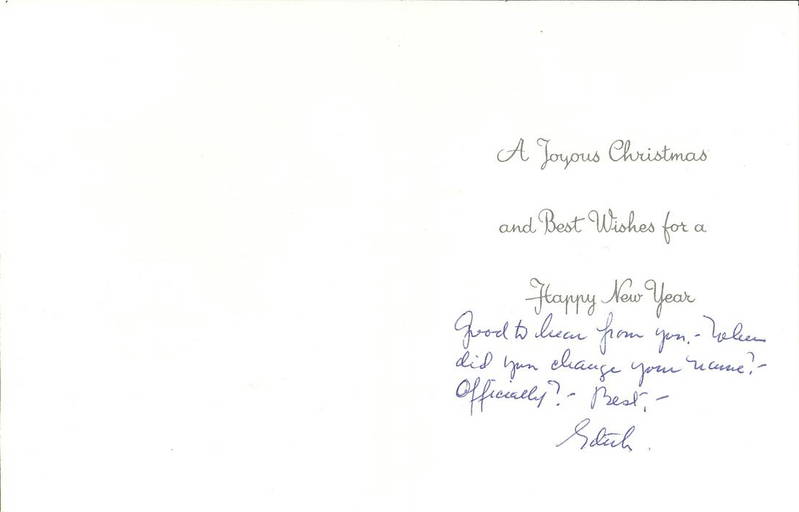 A Joyous Christmas
and Best Wishes for a
Happy New Year
Good to hear from you. - When
did you change your name? -
Officially? - Best, -